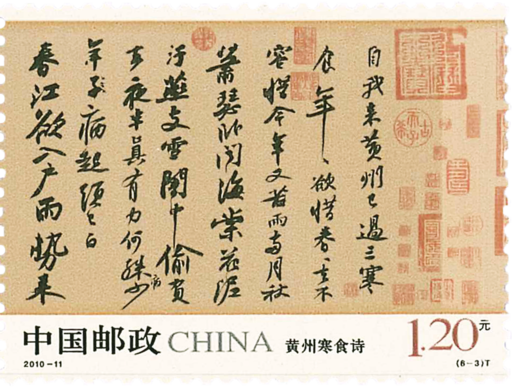 自我來黄州已過三寒
食年〻欲惜春〻去不
容惜今年又苦雨兩月秋
蕭瑟卧聞海棠花泥
汙燕支雪闇中偷負
去夜半真有力何殊少
病
年子病起須已白
春江欲入户雨勢来
中国邮政 CHINA 黄州寒食诗 1.20元
2010-11 (6-3)T